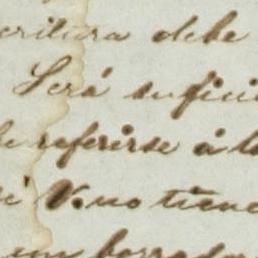 critura debe
Será sufici
le referirse á l
V. no tiene
un borrador